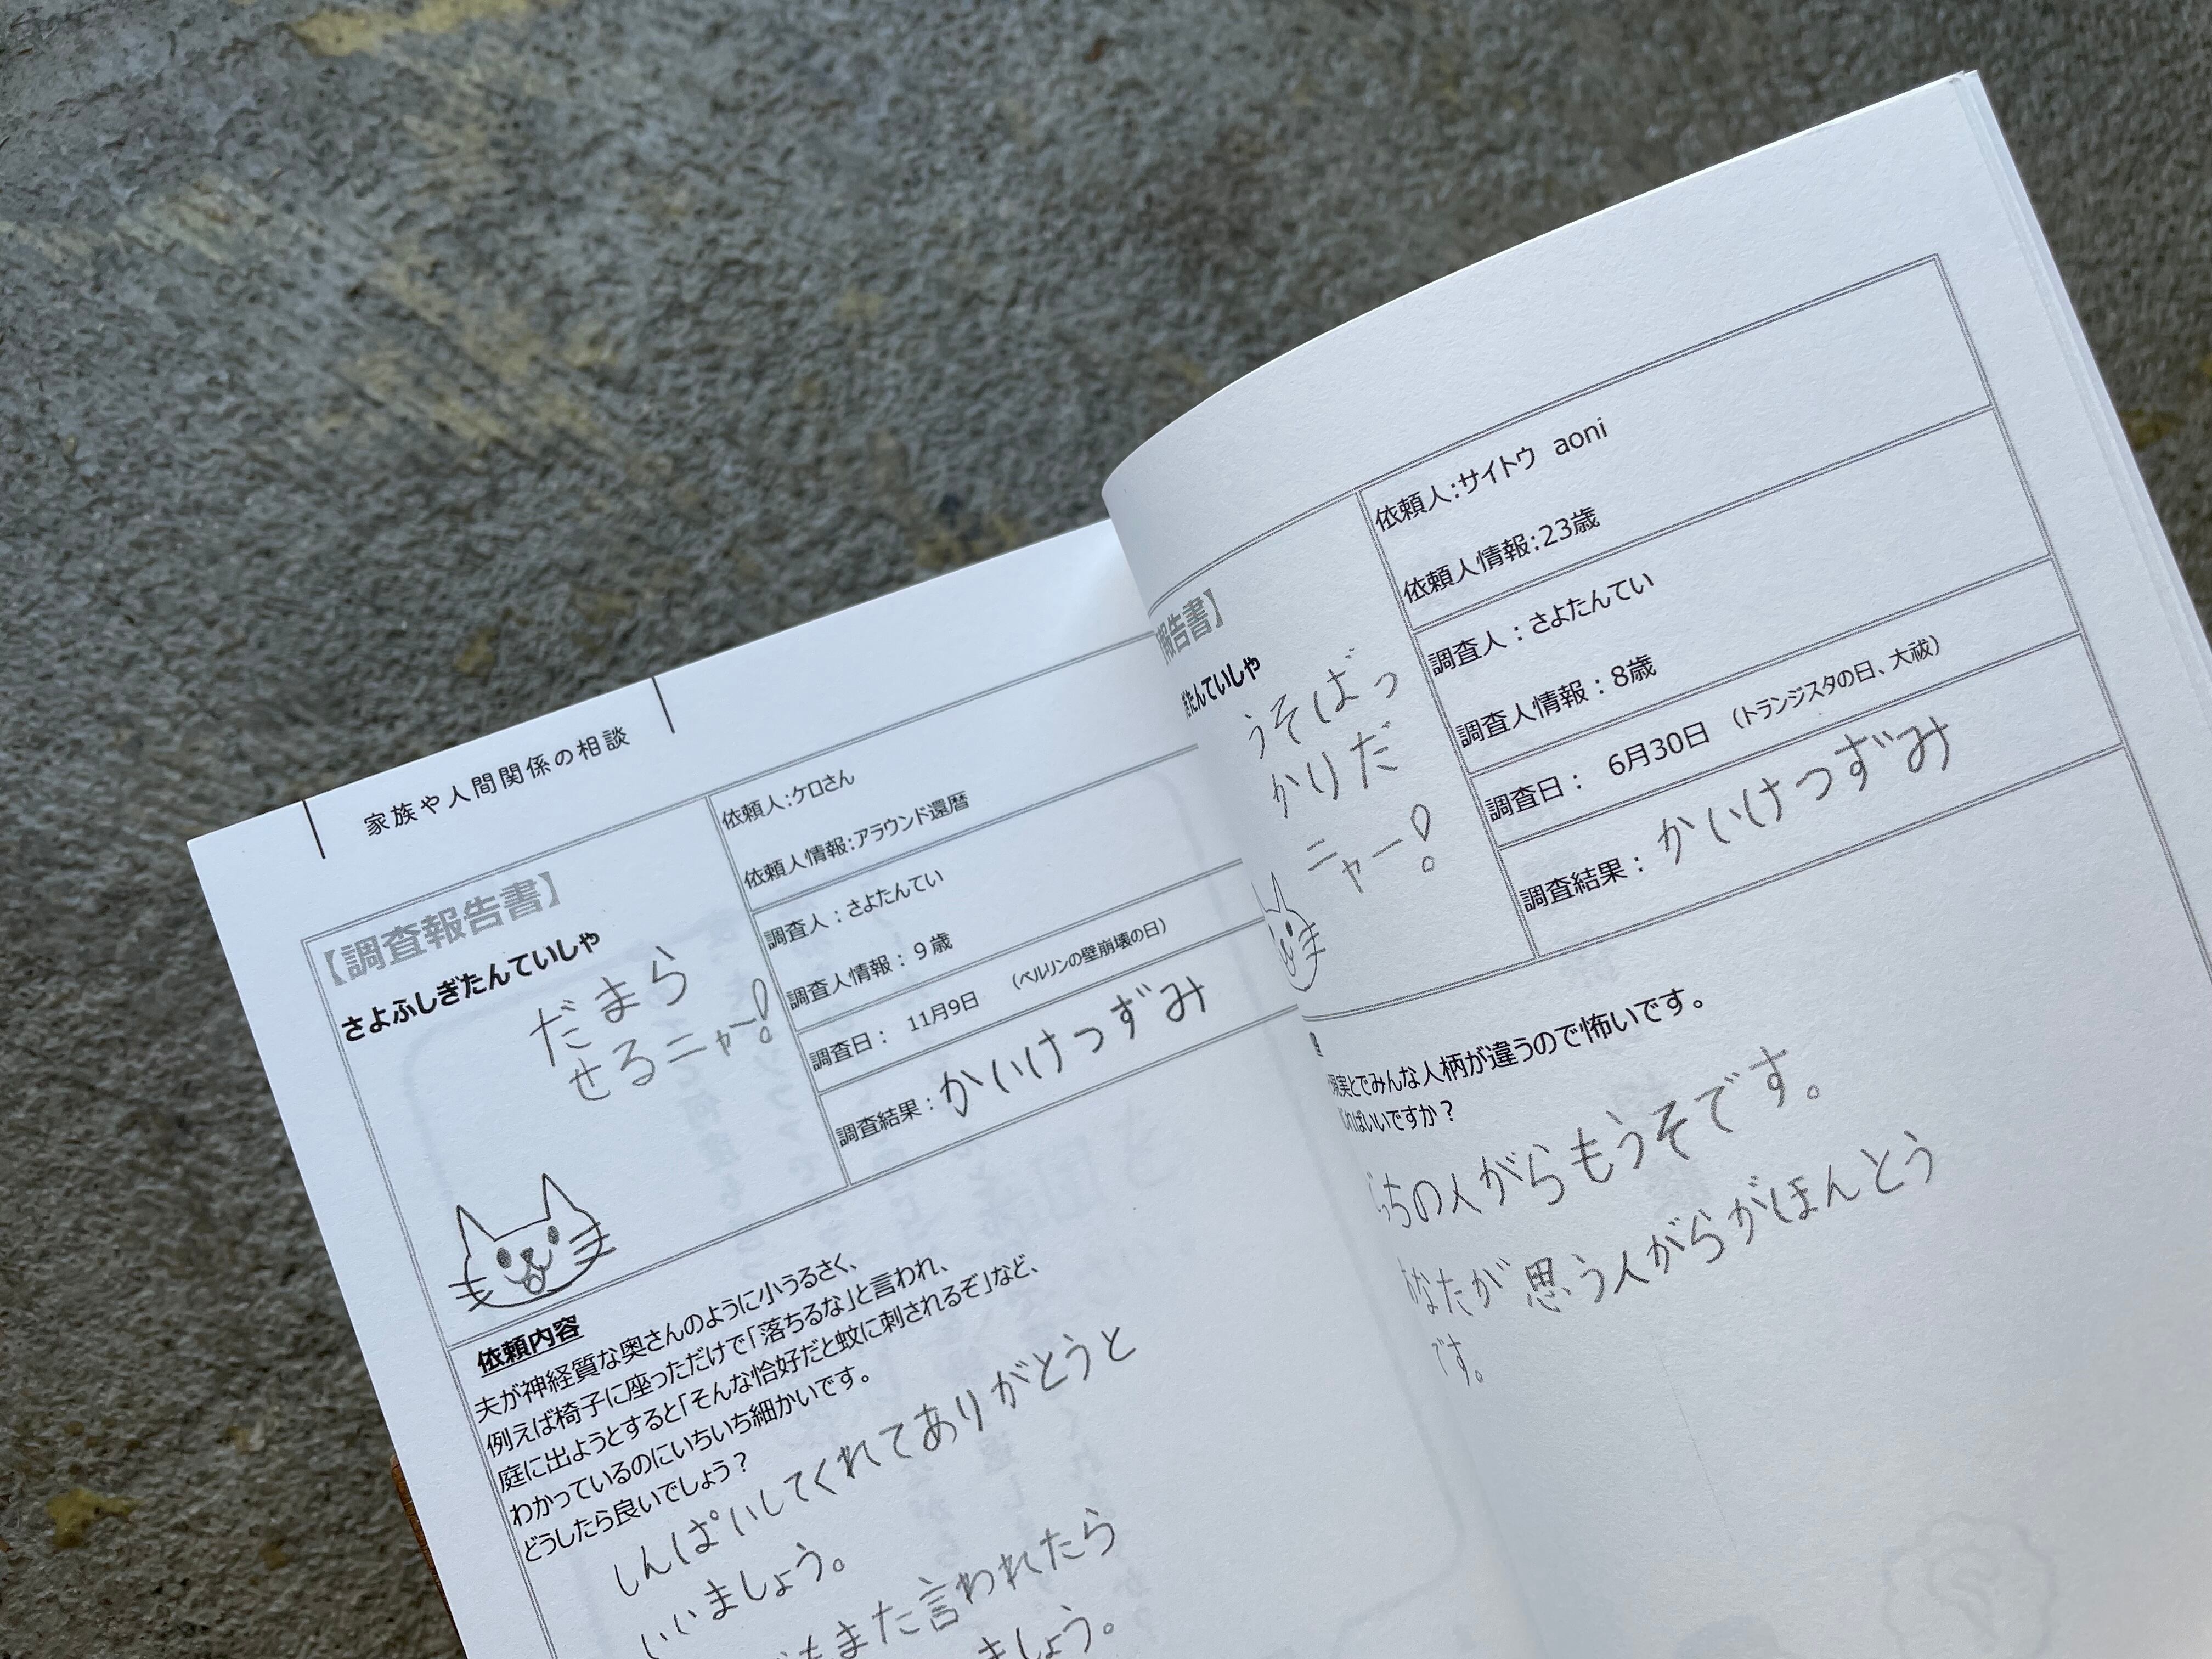 家族や人間関係の相談
【調査報告書】
さよふしぎたんていしゃ
だまら
せるニャー！
依頼人：ケロさん
依頼人情報：アラウンド還暦
調査人：さよたんてい
調査人情報：９歳
調査日： 11月9日 （ベルリンの壁崩壊の日）
調査結果：かいけつずみ
依頼内容
夫が神経質な奥さんのように小うるさく、
例えば椅子に座っただけで「落ちるな」と言われ、
庭に出ようとすると「そんな恰好だと蚊に刺されるぞ」など、
わかっているのにいちいち細かいです。
どうしたら良いでしょう？
しんぱいしてくれてありがとうと
いいましょう。
もまた言われたら
ましょう。
報告書】
ぎたんていしゃ
うそばっ
かりだ
ニャー！
依頼人：サイトウ aoni
依頼人情報：23歳
調査人：さよたんてい
調査人情報：8歳
調査日： 6月30日 （トランジスタの日、大祓）
調査結果：かいけつずみ
現実とでみんな人柄が違うので怖いです。
ればいいですか？
っちの人がらもうそです。
あなたが思う人がらがほんとう
です。